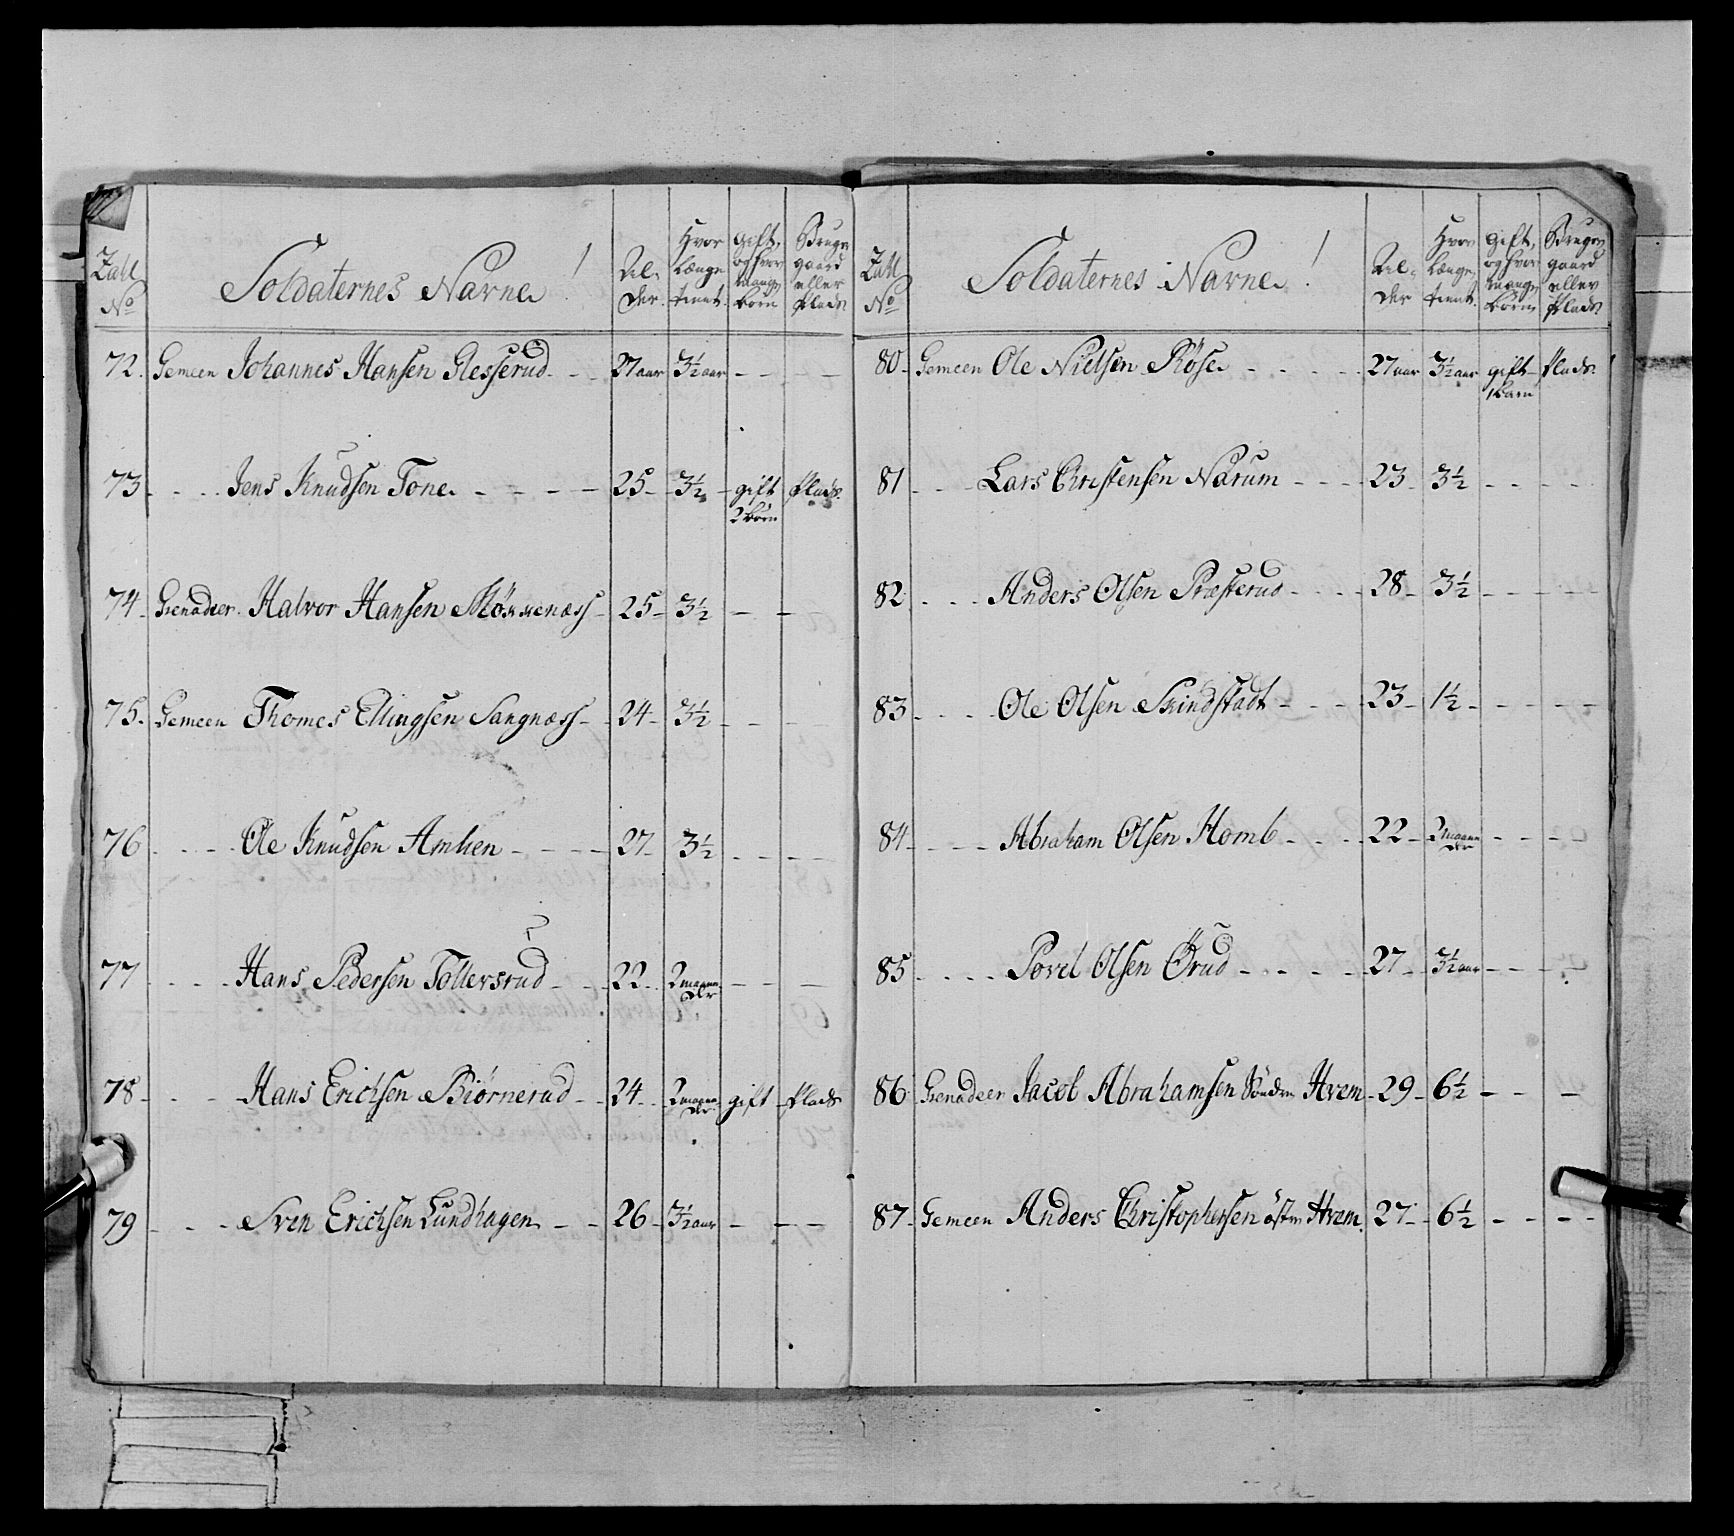 Zall No | Soldaternes Navne | Al-der | Hvor længe tient | Gift, og hvor mange børn | Bruger gaard eller Plads
72. Gemeen Johannes Hansen Glesserud - 27 aar 3½ aar - - -
73 - - - Jens Knudsen Tone - - - 25 - 3½ - gift 2 børn Plads
74 - Grenadeer Halvor Hansen Mönnenæss - 25 - 3½ - -
75. Gemeen Thomes Ellingsen Sangnæss - 24 - 3½ - - -
76 - - - Ole Knudsen Amlien - - - 27 - 3½ - - - -
77 - - - Hans Pedersen Tollersrud - 22 - 2 maaneder - - -
78 - - - Hans Erichsen Biörnerud - 24 - 2 maaneder gift - Plads
79 - - - Sven Erichsen Lundhagen - - 26 - 3½ aar - - -
Zall No | Soldaternes Navne | Al-der | Hvor længe tient | Gift, og hvor mange børn | Bruger gaard eller Plads
80 - Gemeen Ole Nielsen Röse - - - - 27 aar 3½ aar gift 1 barn Plads
81 - - - Lars Christensen Narum - - - 23 - 3½ - - - -
82 - - - Anders Olsen Præsterud - - - 28 - 3½ - - - -
83 - - - Ole Olsen Skindstadt - - - 23 - 1½ - - - -
84 - - - Abraham Olsen Homb - - - 22 - 2 maaneder - - -
85 - - - Povel Olsen Örud - - - 27 - 3½ aar - - -
86 Grenadeer Jacob Abrahamsen Sönder Hvem - 29 - 6½ - - -
87 - Gemeen Anders Christophersen öster Hvem. 27 - 6½ - - -